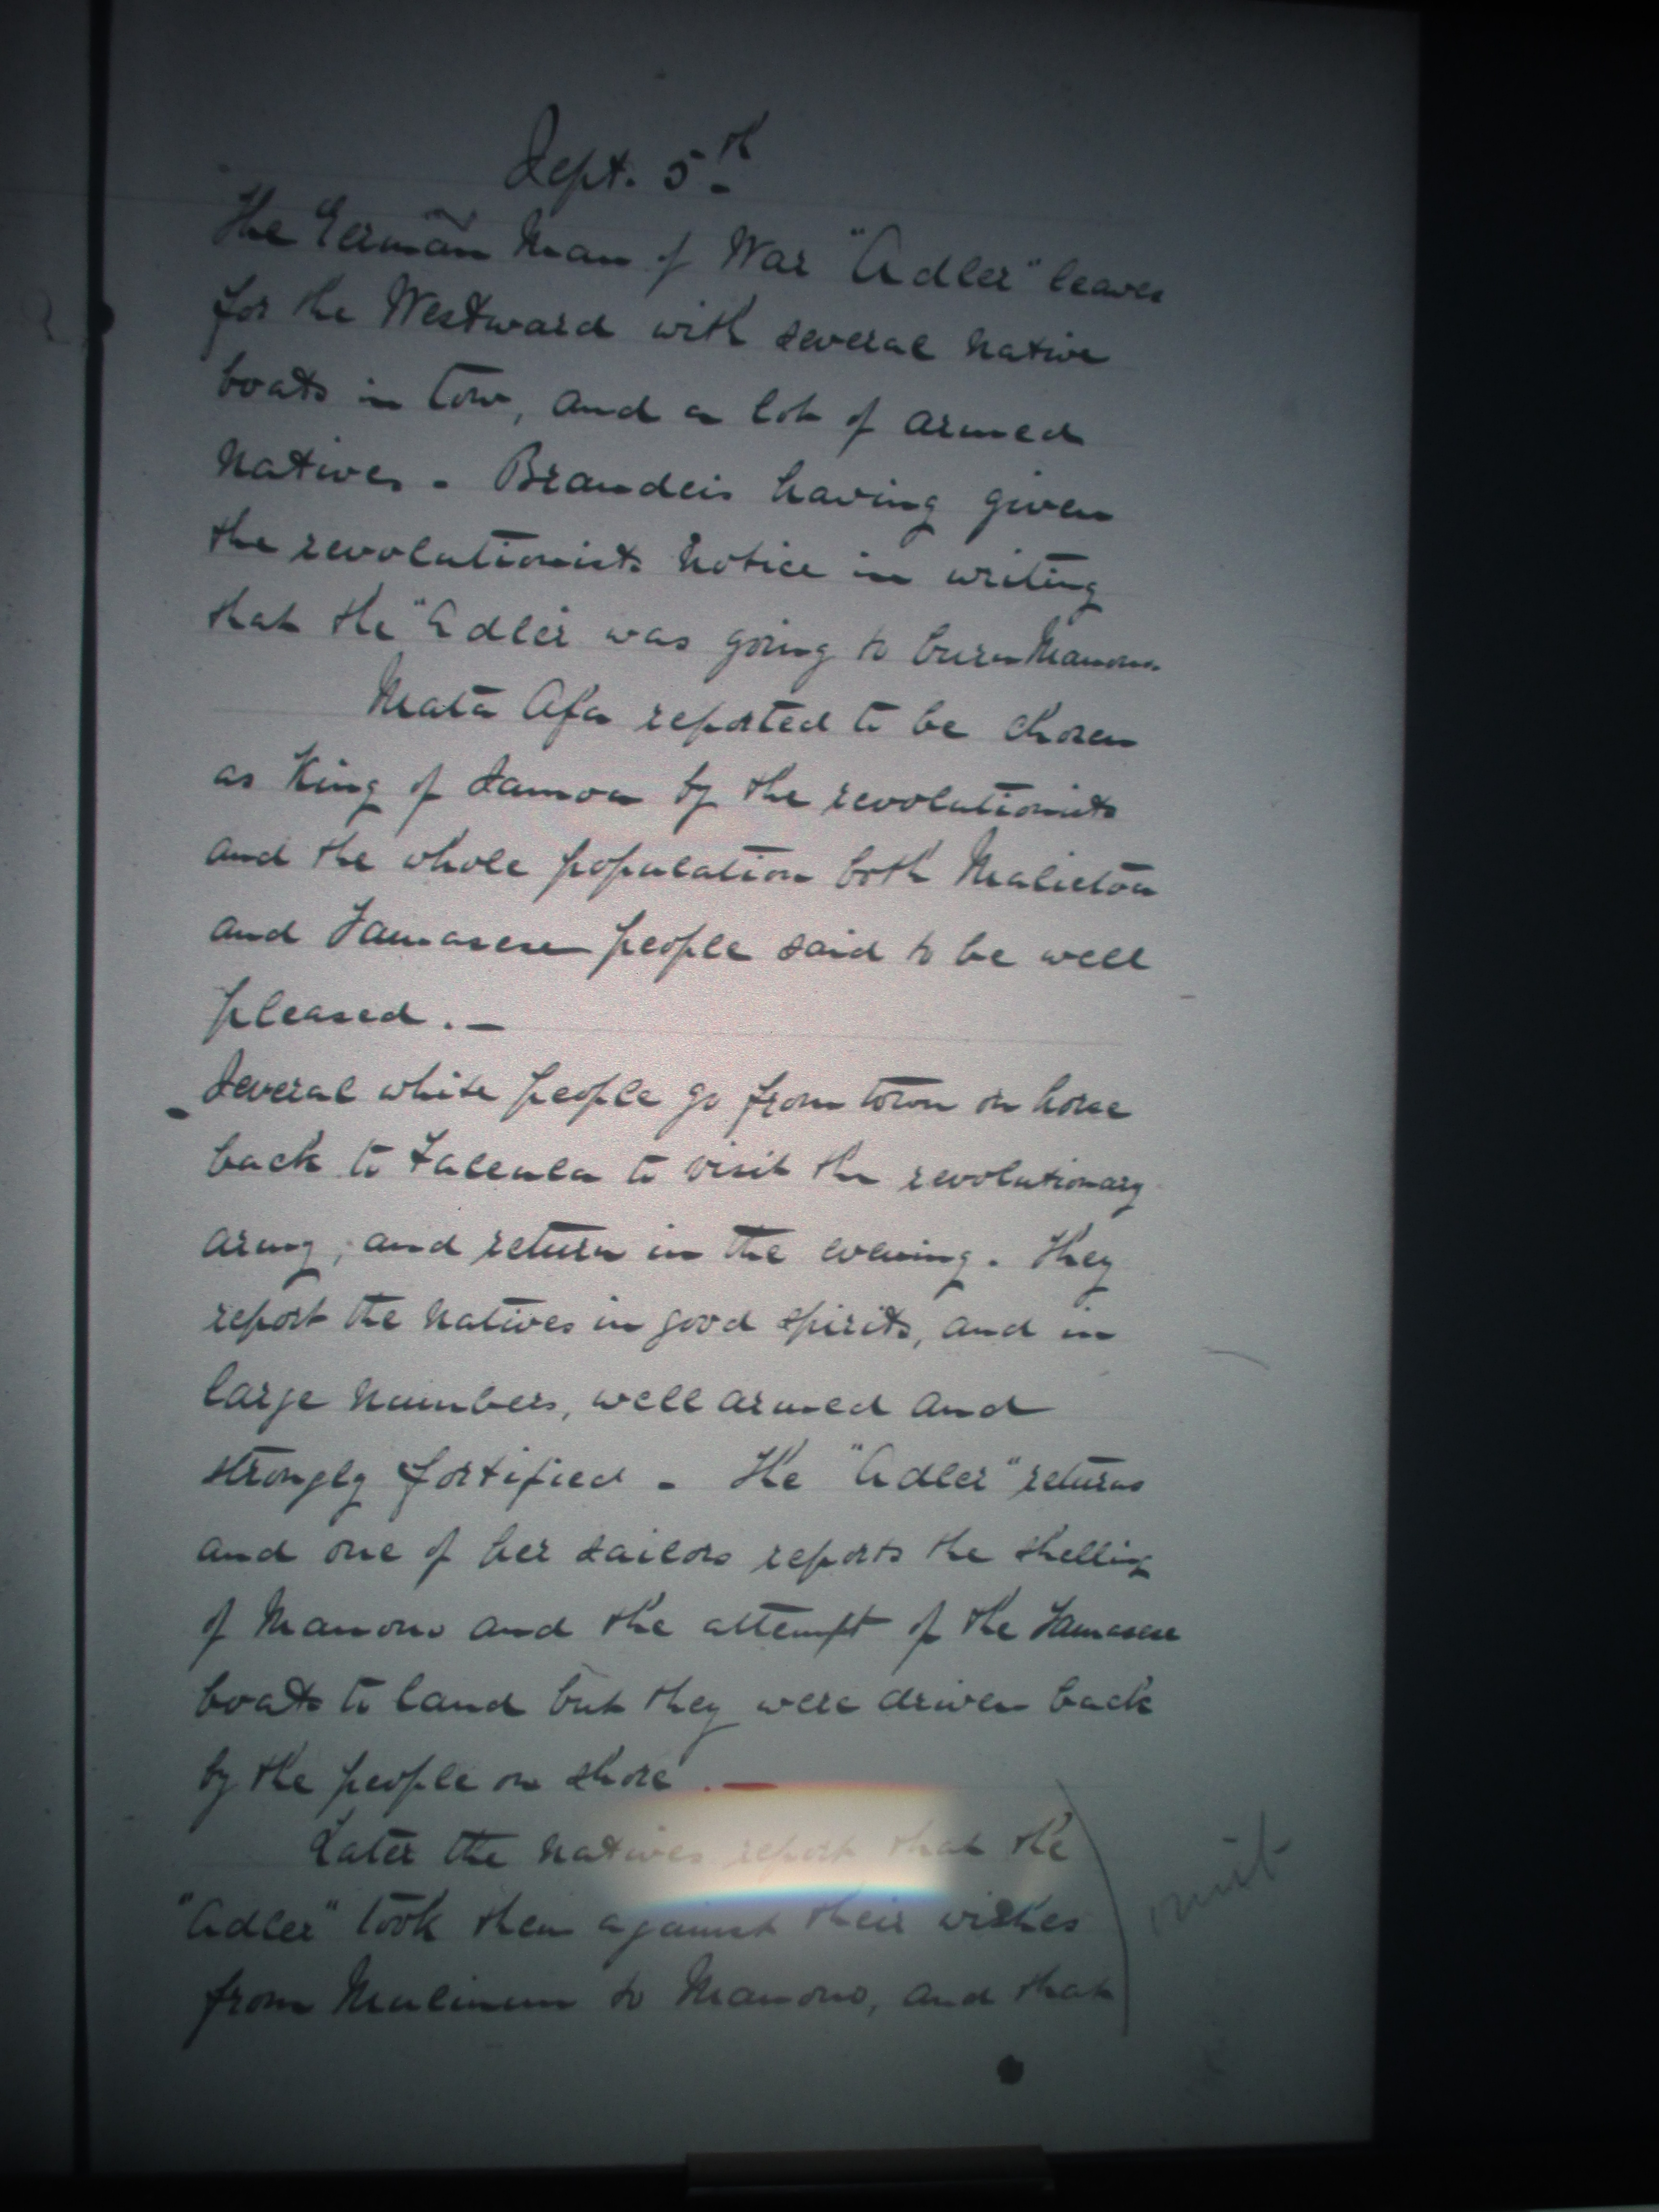 Sept. 5th
The German Man of War "Adler" leaves
for the Westward with several native
boats in tow, and a lot of armed
natives. Brandeis having given
the revolutionists notice in writing
that the "Adler was going to burn Manono.
Mata Afa reported to be chosen
as King of Samoa by the revolutionists
and the whole population both Malietoa
and Tamasese people said to be well
pleased. —
Several white people go from town on horse
back to Faleula to visit the revolutionary
army, and return in the evening. They
report the natives in good spirits, and in
large numbers, well armed and
strongly fortified - The "Adler" returns
and one of her sailors reports the shelling
of Manono and the attempt of the Tamasese
boats to land but they were driven back
by the people on shore. —
Later the natives report that the
"Adler" took them against their wishes
from Mulinuu to Manono, and that
omit